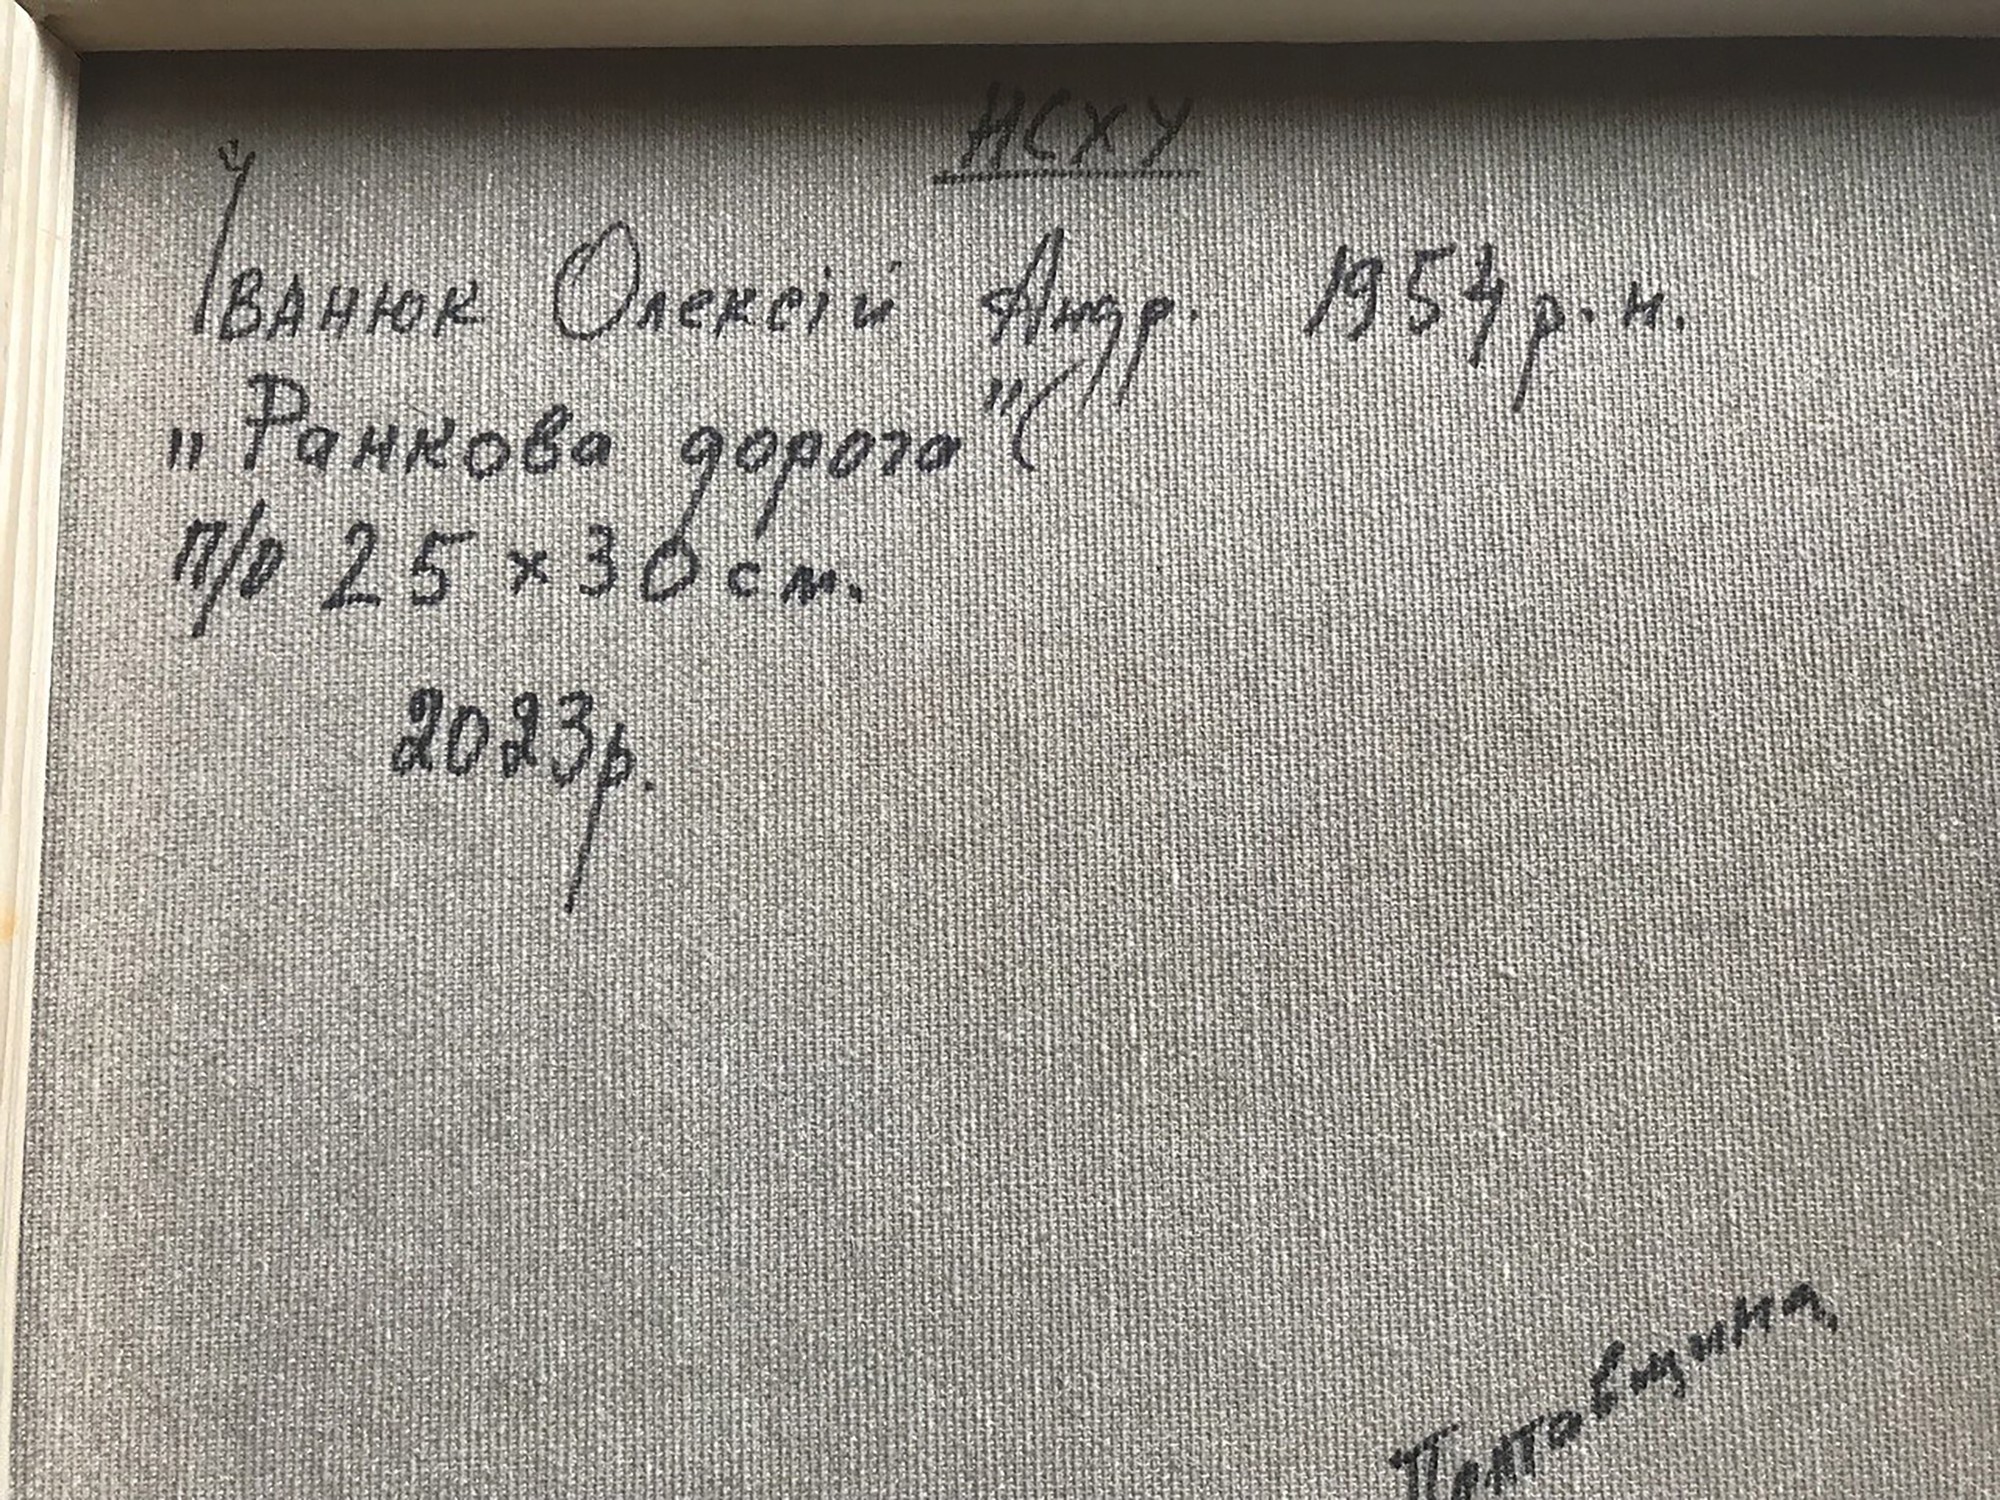 НСХУ
Іванюк Олексій Андр. 1954 р. н.
„Ранкова дорога"
п/о 25 × 30 см.
2023р.
Полтавщина